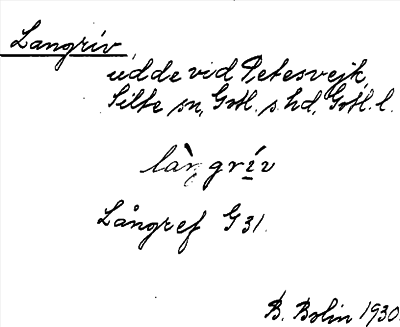 Langriv
udde vid Petesvejk,
Silte sn, Gotl. s. hd, Gotl. l.
làŋgri̲v
Långref G 31.
B. Bolin 1930.